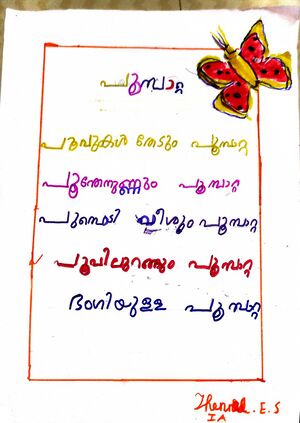 പൂമ്പാറ്റ
പൂവുകൾ തേടും പൂമ്പാറ്റ
പൂന്തേനുണ്ണും പൂമ്പാറ്റ
പൂമ്പൊടി വീശും പൂമ്പാറ്റ
പൂവിലുറങ്ങും പൂമ്പാറ്റ
ഭംഗിയുള്ള പൂമ്പാറ്റ
E.S
IA